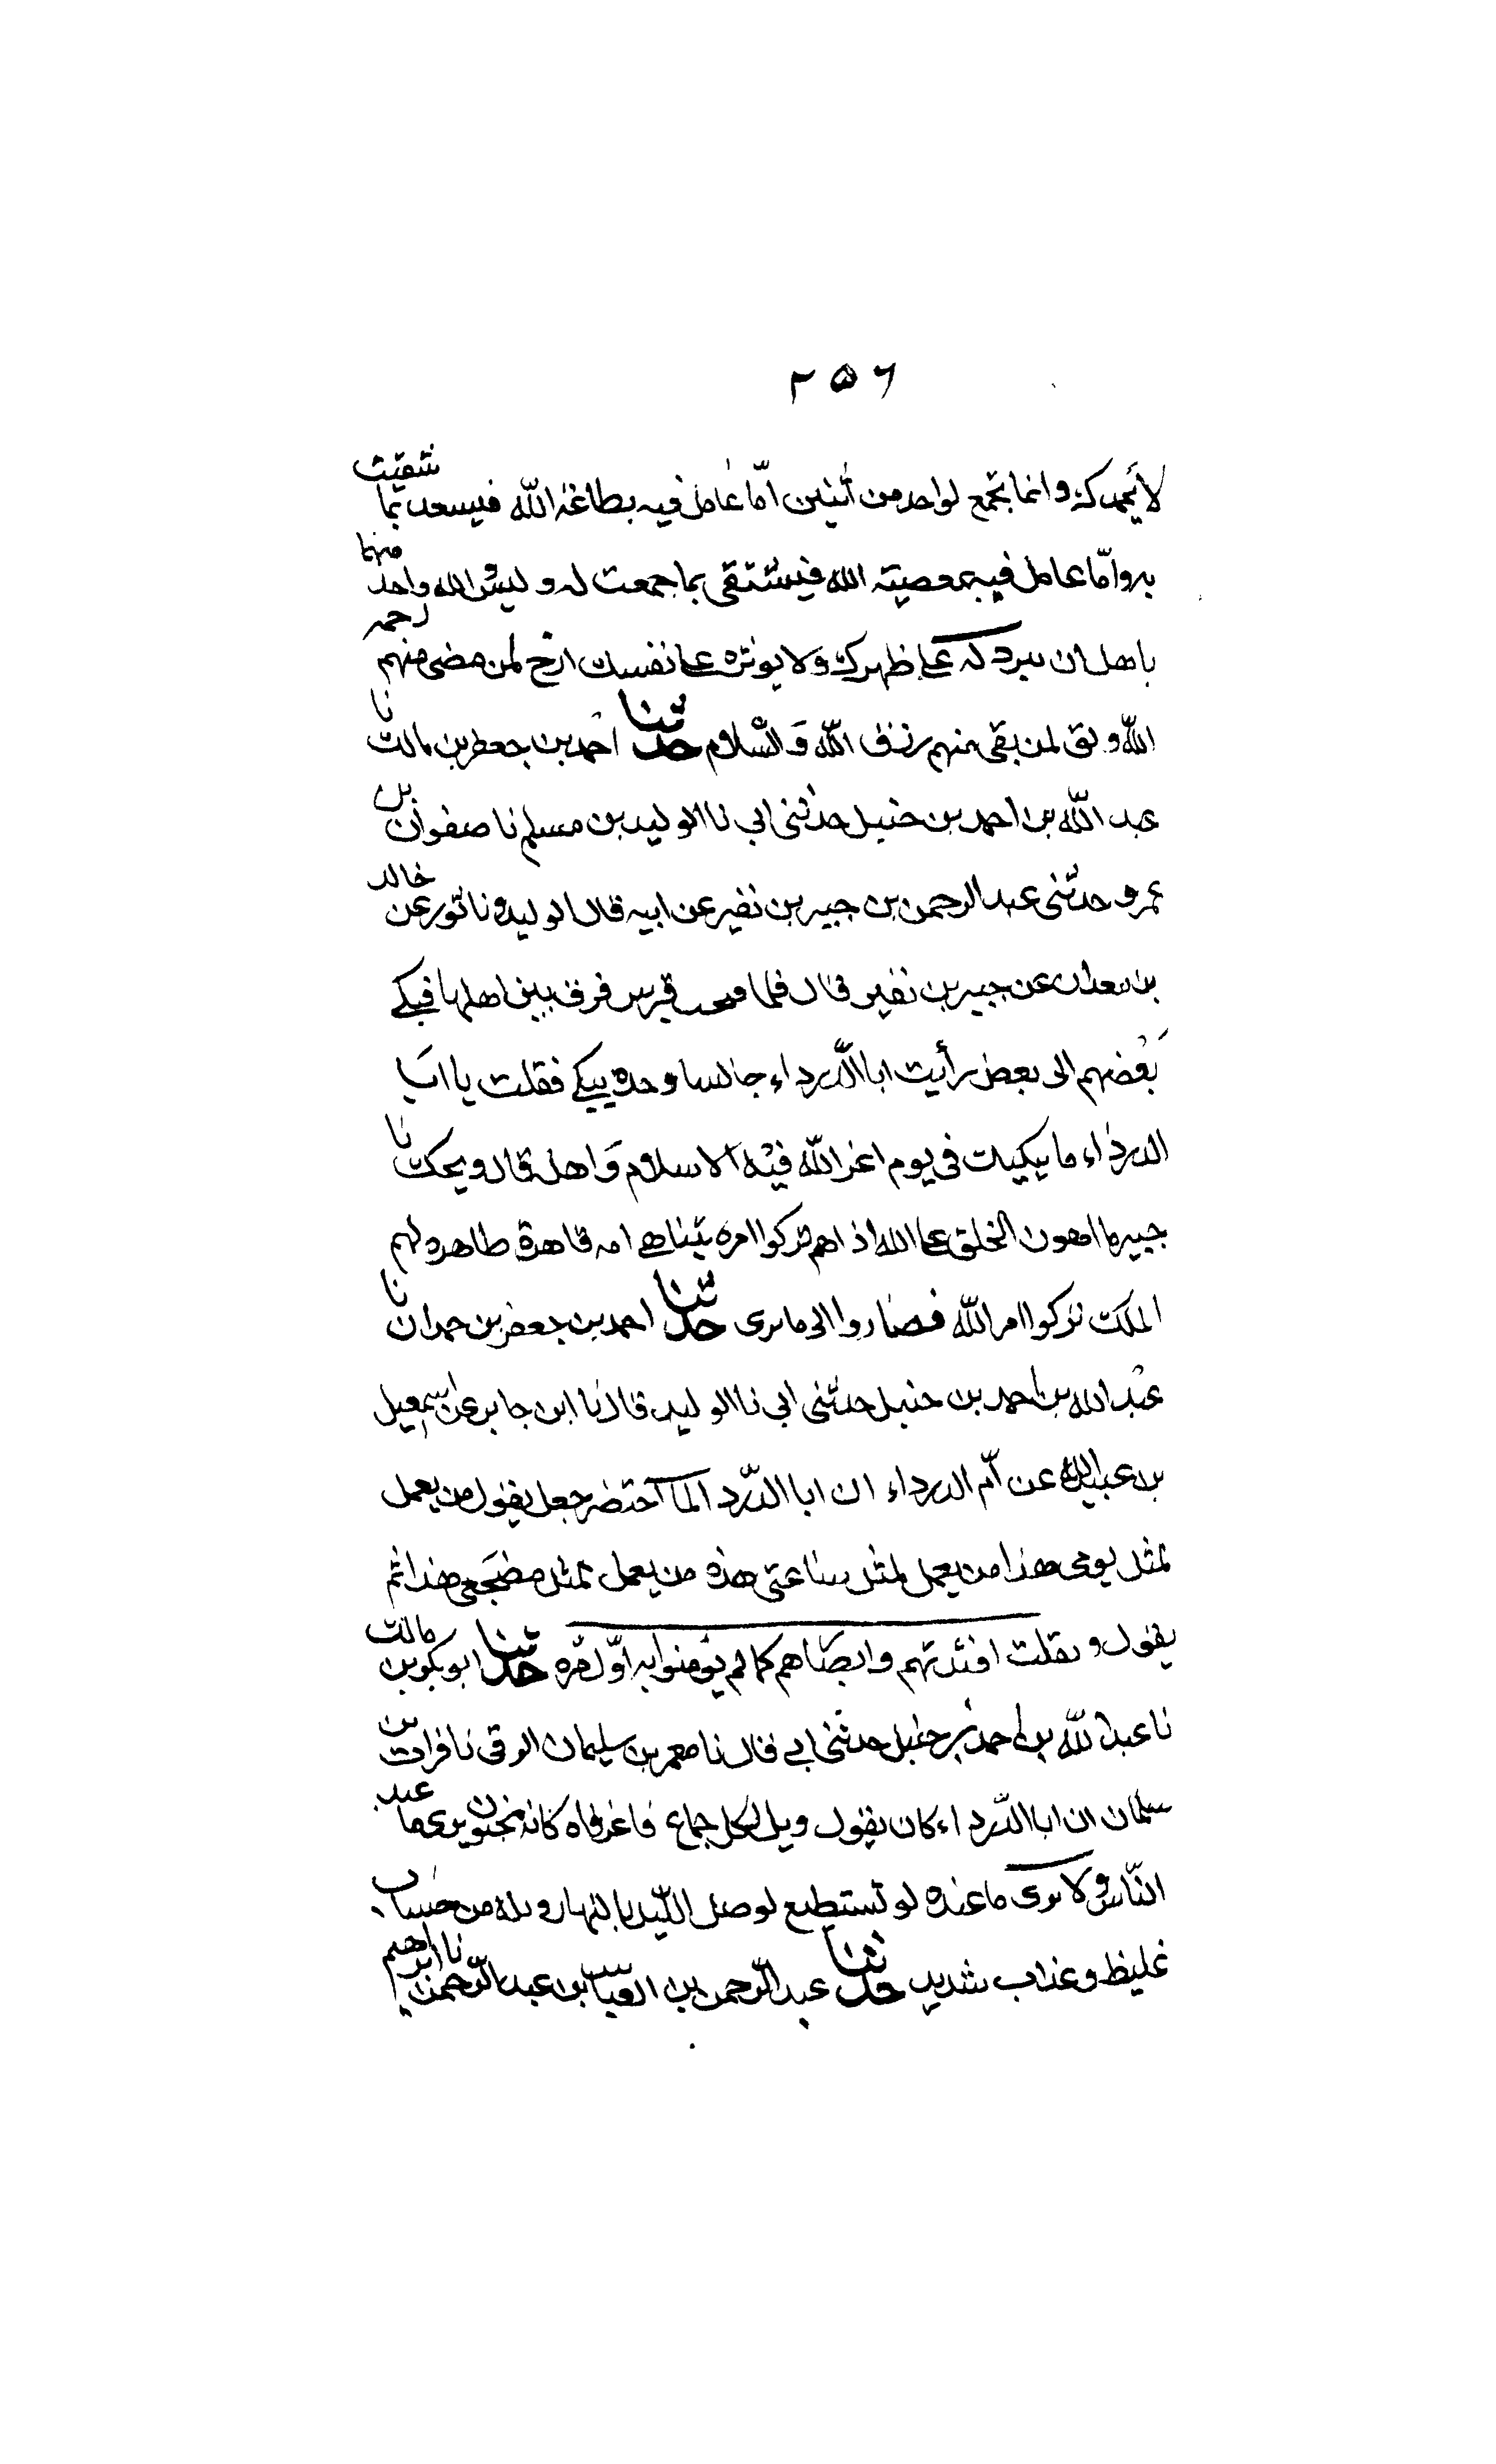 ٢٥٦
لا يحمدك وانما تجمع لواحد من اثنين امّا عامل فيه بطاعة الله فيسعد بما شقيت
به وامّا عامل فيه بمعصيته الله فيشتقى بما جمعت له وليس والله واحد منهما
باهل ان تبرد له على ظهرك ولا يوثره على نفسك ارج لمن مضى منهم رحمه
الله وثق لمن بقى منهم رزق الله وَالسّلام حدثنا احمد بن جعفر بن مالك نا
عبد الله بن احمد بن حنبل حدثنى ابي نا الوليد بن مسلم نا صفوان بن
عمرو حدثنى عبد الرحمن بن جبير بن نفير عن ابيه قال الوليد ونا ثور عن خالد
بن معدان عن جبير بن نفير قال فلما فتحت قبرس فرق بين اهلها فبكى
بَعْضهم الى بعض رأيت ابا الدّرداء جالسا وحده يبكي فقلت يا ابَا
الدرداء ما يبكيك في يوم اعز الله فيْه الاسلام وَاهله قال ويحك يا
جبير ما اهون الخلق على الله اذا هم تركوا امره بينا هي امه قاهرة ظاهره لهم
الملك تركوا امر الله فصاروا الى ما ترى حدثنا احمد بن جعفر بن حمدان نا
عبْد الله بن احمد بن حنبل حدثنى ابي نا الوليد قال نا ابن جابر عن اسمعيل
بن عبيد الله عن امّ الدرداء ان ابا الدّردا لما احتضر جعل يقول من يعمل
لمثل يومى هذا من يعمل لمثل ساعتى هذه من يعمل لمثل مضجَعى هذا ثم
يقول ونقلب افئدتهم وابصَاهم كما لم يؤمنوا به اوّل مره حدثنا ابو بكر بن مالك
نا عبد الله بن احمد بن حنبل حدثنى ابي قال نا معمر بن سليمان الرقى نا فرات بن
سلمان ان ابا الدّرداء كان يقول ويل لكل جماع فاغر فاه كانه مجنون يرى ما عند
النّاس ولا يرى ما عنده لو تستطيع لوصل اللّيل بالنهار ويله من حساب
غليظ وعذاب شديد حدثنا عبد الرّحمن بن العبّاس بن عبد الرّحمن نا ابراهيم